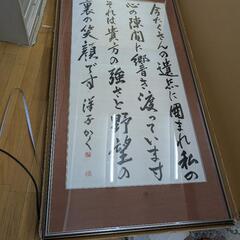 今たくさんの遺品に囲まれ私の
心の隙間に響き渡っています
それは貴方の強さと野望の
裏の笑顔です 洋子かく